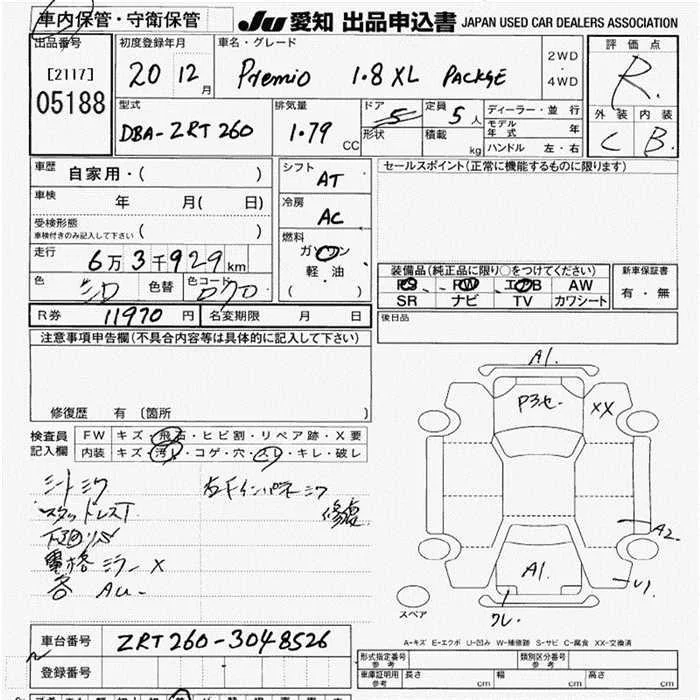 車内保管・守衛保管 JU 愛知 出品申込書 JAPAN USED CAR DEALERS ASSOCIATION
出品番号 初度登録年月 車名・グレード 評価点
[2117] 20 12月 Premio 1.8 XL PACKGE 2WD・4WD R.
05188
型式 排気量 ドア 定員 ディーラー・並行 外装 内装
DBA-ZRT260 1.79 CC 5 5人 モデル年式 年 C B.
形状 積載 kg ハンドル 左・右
車歴 自家用・( ) シフト AT セールスポイント(正常に機能するものに限ります)
車検 年 月( 日) 冷房 AC
受検形態 ( )
車検付きのみ記入して下さい
燃料
走行 6万3千929km ガソリン
軽・油
( )
装備品(純正品に限り○をつけてください) 新車保証書
色 シロ 色替 色コード PS・PW・エアB AW 有・無
SR ナビ TV カワシート
R券 11970円 名変期限 月 日 後日品
注意事項申告欄(不具合内容等は具体的に記入して下さい)
修復歴 有 (箇所 )
A1.
P3セ- XX
検査員記入欄 FW キズ・飛石・ヒビ割・リペア跡・X要
内装 キズ・汚れ・コゲ・穴・スレ・キレ・破レ
シートシワ
スタッドレスT
修復
電格ミラーX
A2
A1.
U1
ワレ.
スペア
A-キズ E-エクボ U-凹み W-補修跡 S-サビ C-腐食 XX-交換済
車台番号 ZRT260-3048526
登録番号
形式指定番号 参考 類別区分番号 参考
車庫証明用 参考 長さ cm 幅 cm 高さ cm